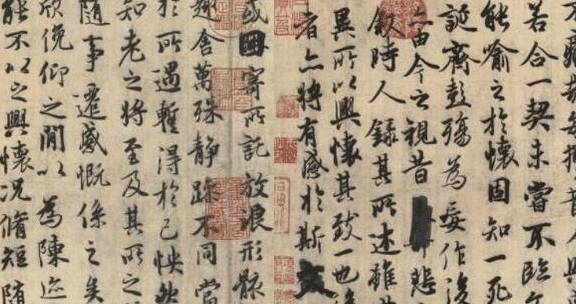 不痛哉每攬昔人興
若合一契未嘗不臨
能喻之於懷固知一死
誕齊彭殤為妄作後
亦由今之視昔悲
敘時人錄其所述雖
異所以興懷其致一也後
者亦將有感於斯文
或因寄所託放浪形骸
趣舍萬殊靜躁不同當
於所遇暫得於己快然
知老之將至及其所之
隨事遷感慨係之矣
欣俛仰之閒以為陳迹
能不以之興懷況脩短隨